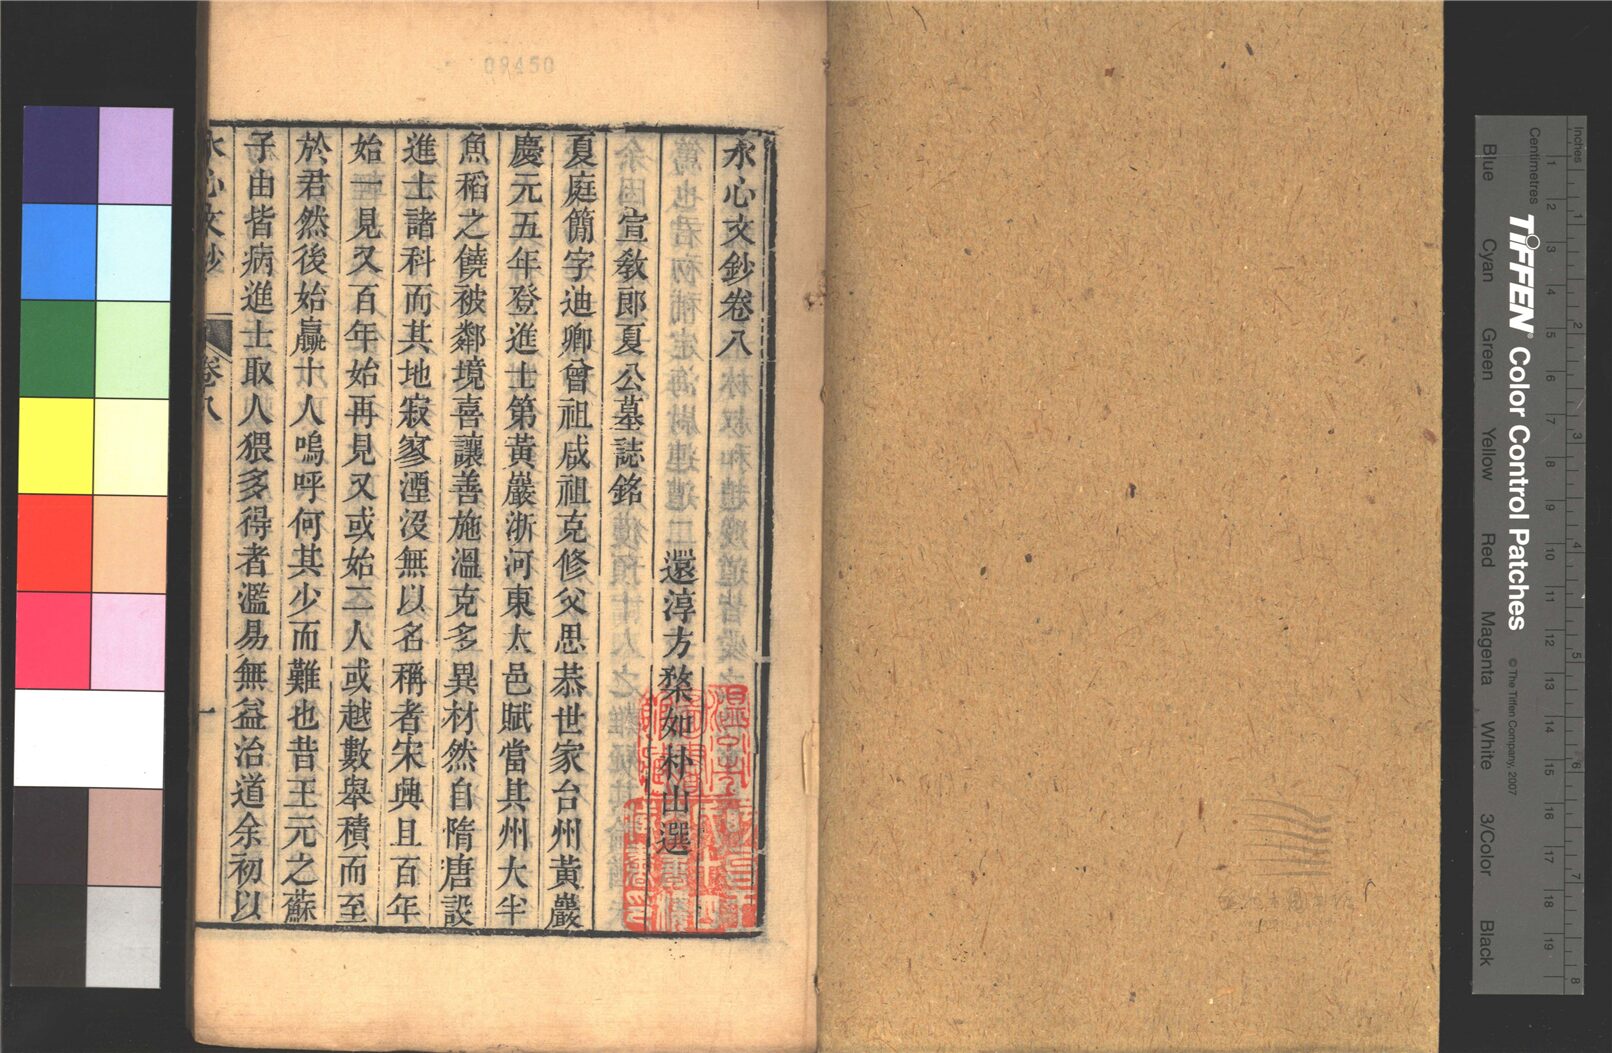 水心文鈔卷八
還淳方楘如朴山選
宣敎郎夏公墓誌銘
夏庭簡字迪卿曾祖咸祖克修父思恭世家台州黃巖
慶元五年登進士第黃巖浙河東太邑賦當其州大半
魚稻之饒被鄰境喜讓善施溫克多異材然自隋唐設
進士諸科而其地寂寥湮沒無以名稱者宋興且百年
始一見又百年始再見又或始二人或越數舉積而至
於君然後始贏十人嗚呼何其少而難也昔王元之蘇
子由皆病進士取人猥多得者濫易無益治道余初以
水心文鈔
卷八
一
09450
Inches
Centimetres
TIFFEN Color Control Patches
© The Tiffen Company, 2007
Blue
Cyan
Green
Yellow
Red
Magenta
White
3/Color
Black
1 2 3 4 5 6 7 8 9 10 11 12 13 14 15 16 17 18 19
1 2 3 4 5 6 7 8